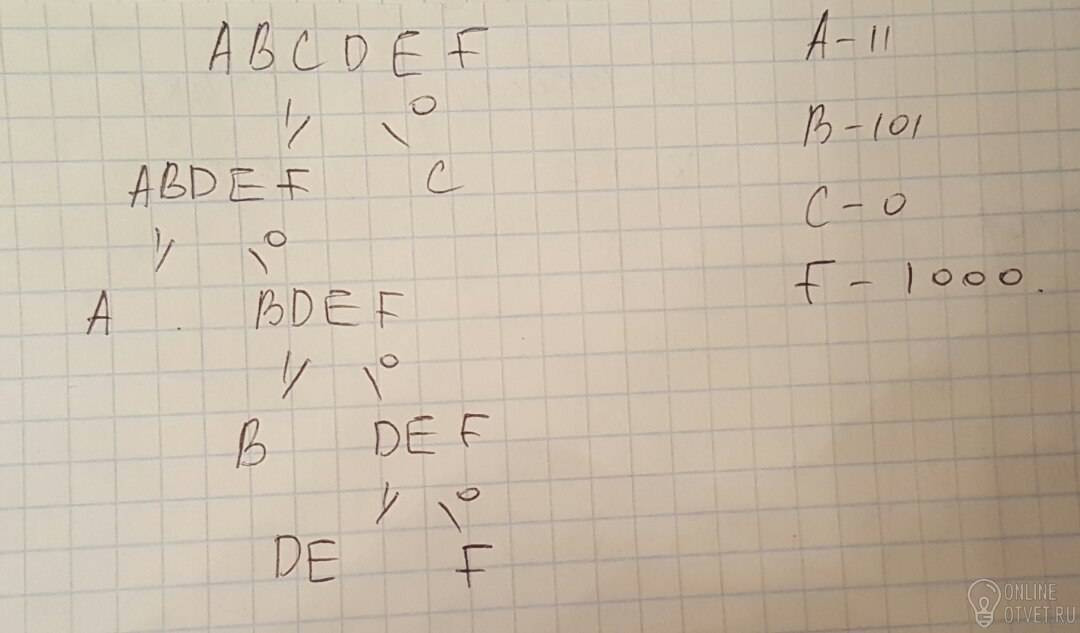 ABCDEF
1 0
ABDEF C
1 0
A . BDEF
1 0
B DEF
1 0
DE F
A-11
B-101
C-0
F-1000.
ONLINE
OTVET.RU